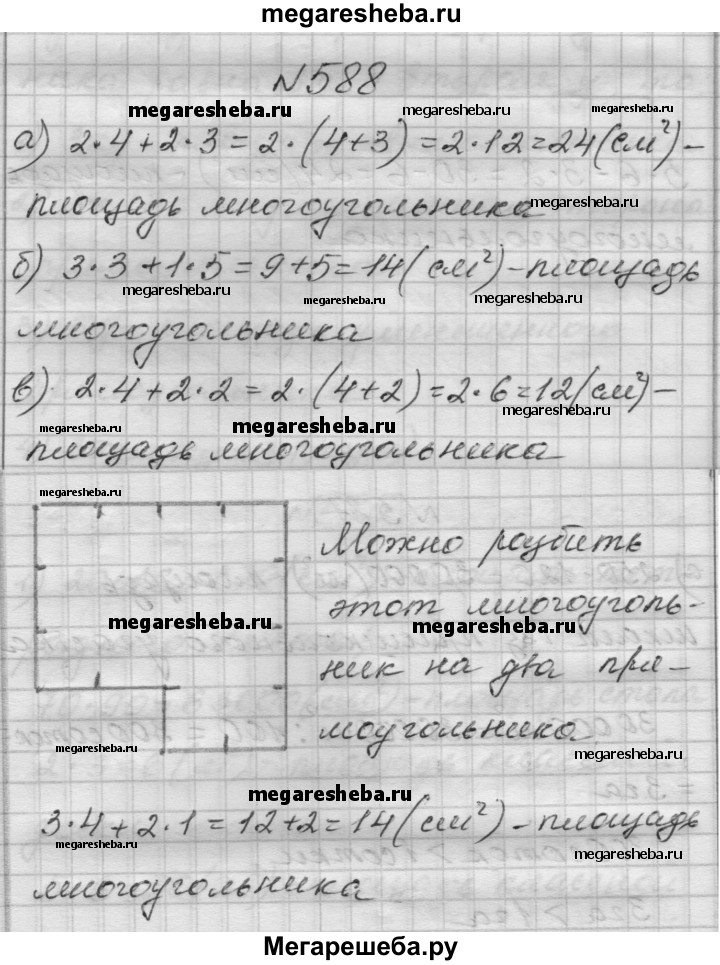 megaresheba.ru
№588
megaresheba.ru megaresheba.ru megaresheba.ru
а) 2·4+2·3=2·(4+3)=2·12=24(см²)-
megaresheba.ru
площадь многоугольника
б) 3·3+1·5=9+5=14(см²)-площадь
megaresheba.ru megaresheba.ru megaresheba.ru
многоугольника
в) 2·4+2·2=2·(4+2)=2·6=12(см²)-
megaresheba.ru megaresheba.ru
площадь многоугольника
megaresheba.ru
Можно разбить
этот многоуголь-
megaresheba.ru megaresheba.ru
ник на два пря-
моугольника
megaresheba.ru megaresheba.ru megaresheba.ru
megaresheba.ru
3·4+2·1=12+2=14(см²)-площадь
megaresheba.ru megaresheba.ru
многоугольника
Мегарешеба.ру